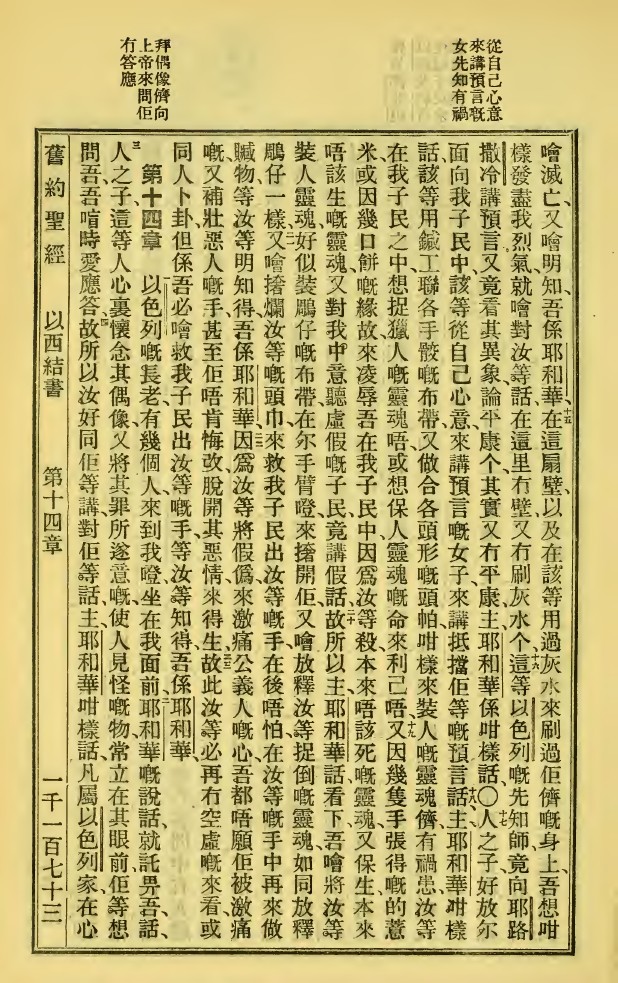 從自己心意
來講預言嘅
女先知有禍
拜偶像儕向
上帝來問佢
冇答應
噲滅亡、又噲明知吾係耶和華、十五在這扇壁、以及在該等用過灰水來刷過佢儕嘅身上、吾想咁
樣發盡我烈氣、就噲對汝等話、在這里冇壁、又冇刷灰水个、十六這等以色列嘅先知師、竟向耶路
撒冷講預言、又竟看其異象論平康、个其實又冇平康、主耶和華係咁樣話、〇十七人之子、好放尔
面向我子民中、該等從自己心意、來講預言嘅女子、來講抵擋佢等嘅預言、十八話、主耶和華咁樣
話、該等用鍼工聯各手骹嘅布帶、又做合各頭形嘅頭帕、咁樣來裝人嘅靈魂儕有禍、患汝等
在我子民之中、想捉獵人嘅靈魂唔、或想保人靈魂嘅命、來利己唔、十九又因幾隻手張得嘅的薏
米、或因幾口餅嘅緣故、來凌辱吾在我子民中、因爲汝等殺本來唔該死嘅靈魂、又保生本來
唔該生嘅靈魂、又對我中意聽虛假嘅子民、竟講假話、二十故所以主耶和華話、看下、吾噲將汝等
裝人靈魂、好似裝鵰仔嘅布帶、在尔手臂嶝來撦開佢、又噲放釋汝等捉倒嘅靈魂、如同放釋
鵰仔一樣、二一又噲撦爛汝等嘅頭巾、來救我子民出汝等嘅手、在後唔怕在汝等嘅手中、再來做
贓物、汝等明知得、吾係耶和華、二二因爲汝等將假僞、來激痛公義人嘅心、吾都唔願佢被激痛
嘅、又補壯惡人嘅手、甚至佢唔肯悔改、脫開其惡情來得生、二三故此汝等必再冇空虛嘅來看、或
同人卜卦、但係吾必噲救我子民出汝等嘅手、等汝等知得、吾係耶和華、
第十四章 以色列嘅長老、有幾個人來到我嶝、坐在我面前、二耶和華嘅說話、就託畀吾話、
三人之子、這等人心裏懷念其偶像、又將其罪所遂意嘅、使人見怪嘅物、常立在其眼前、佢等想
問吾、吾喧時愛應答、四故所以汝好同佢等講、對佢等話、主耶和華咁樣話、凡屬以色列家、在心
舊約聖經 以西結書 第十四章 一千一百七十三